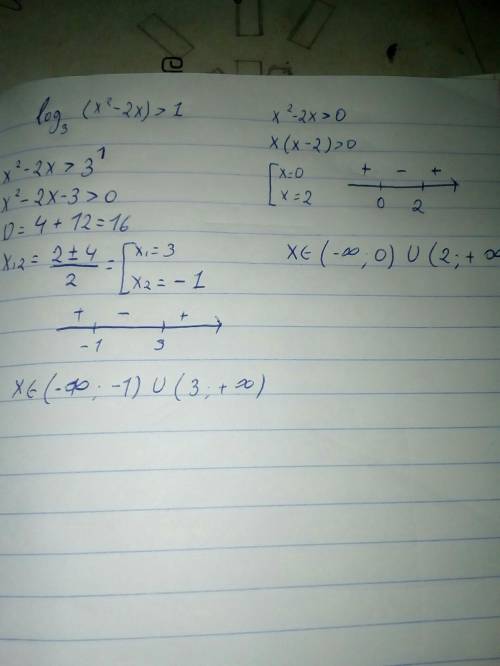 log₃ (x²-2x) > 1
x²-2x > 3¹
x²-2x-3 > 0
D = 4 + 12 = 16
x₁,₂ = (2 ± 4)/2 = [x₁ = 3
x₂ = -1
+ - +
-1 3
x ∈ (-∞; -1) ∪ (3; +∞)
x²-2x > 0
x(x-2) > 0
[x = 0
x = 2
+ - +
0 2
x ∈ (-∞; 0) ∪ (2; +∞